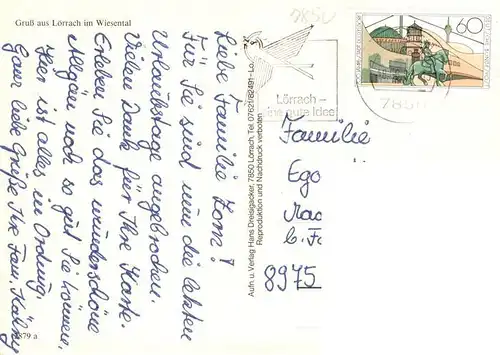 Gruß aus Lörrach im Wiesental
7850
Liebe Familie Zorn!
Für Sie sind nun die letzten
Urlaubstage angebrochen.
Vielen Dank für Ihre Karte.
Erleben Sie das wunderschöne
Allgäu noch so gut Sie können,
Hier ist alles in Ordnung.
Ganz liebe Grüße Ihre Fam.
879 a
Aufn. u. Verlag Hans Dreisigacker, 7850 Lörrach, Tel. 07621/82491-Lo.
Reproduktion und Nachdruck verboten
Lörrach –
eine gute Idee
60
7850
Familie
Ego
8975